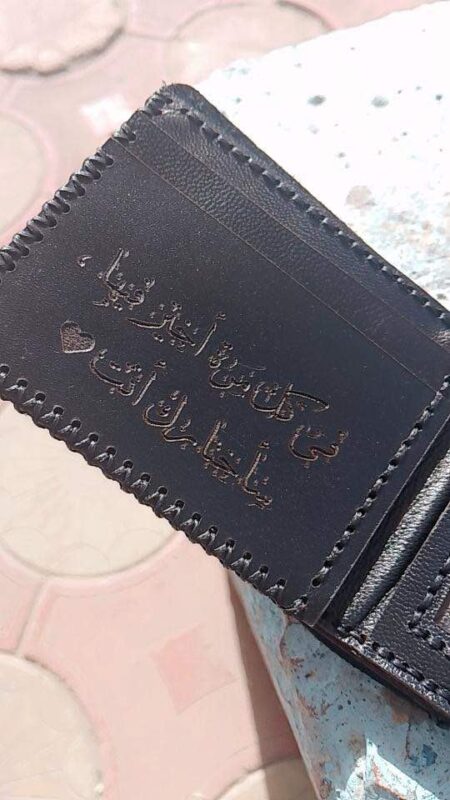 في كل مرة أخير فيها،
سأختارك أنت